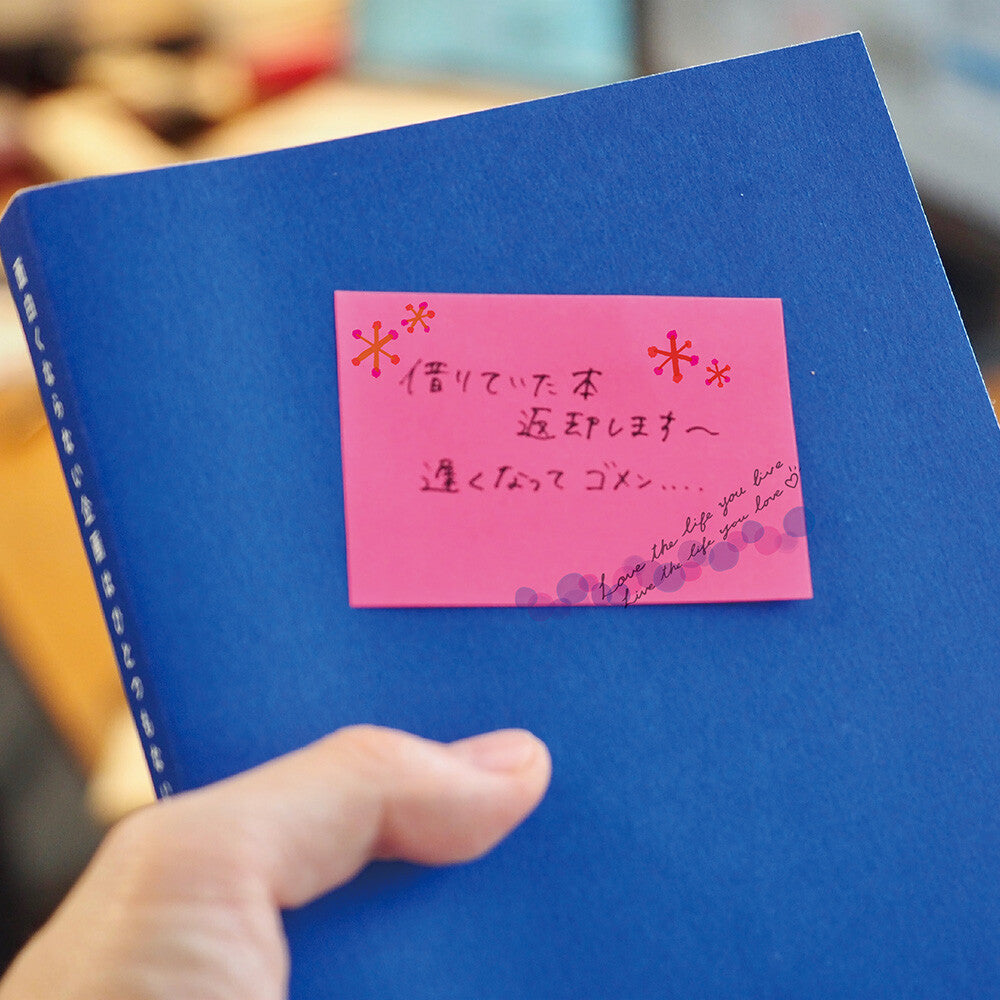 借りていた本
返却します〜
遅くなってゴメン....
Love the life you live
Live the life you love ♡